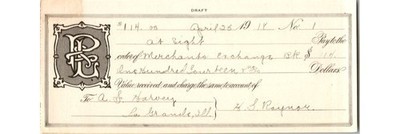 DRAFT
$114.00 April 25 1918 No. 1
At Sight Pay to the
order of Merchants Exchange Bk $114
One Hundred fourteen & Dollars
Value received and charge the same to account of
To A. L. Harvey
La Grande, Ill. H. L. Raynor